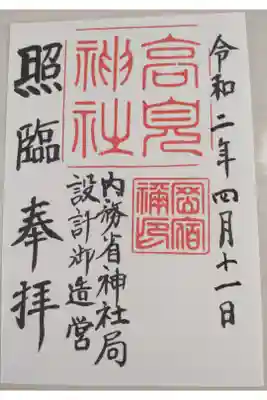 令和二年四月十一日
高見
神社
宮司
禰印
内務省神社局
設計御造営
照臨奉拝